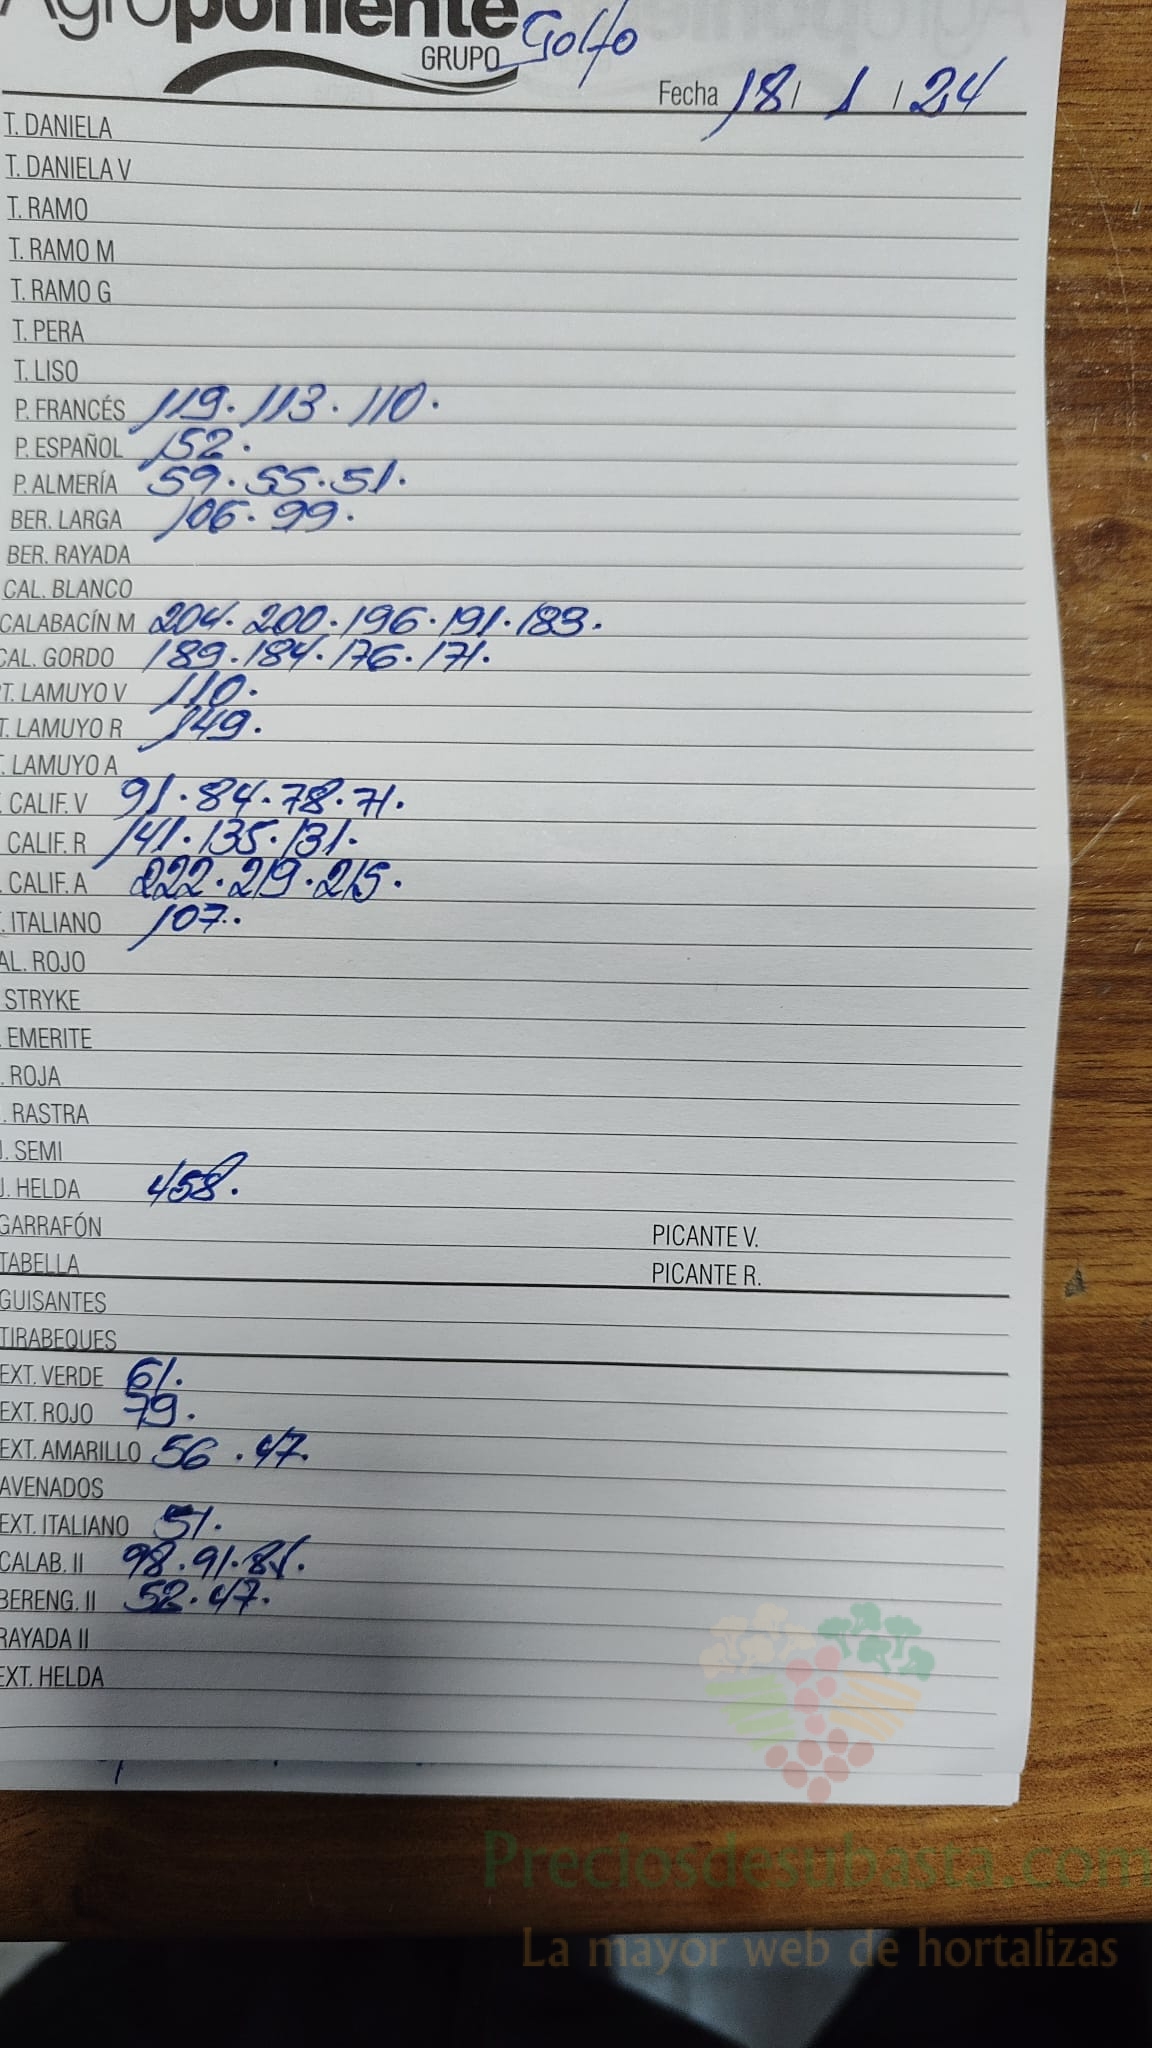 Agroponiente Golfo
GRUPO
Fecha 18 / 1 / 24
T. DANIELA
T. DANIELA V
T. RAMO
T. RAMO M
T. RAMO G
T. PERA
T. LISO
P. FRANCÉS 119. 113. 110.
P. ESPAÑOL 152.
P. ALMERÍA 59. 55. 51.
BER. LARGA 106. 99.
BER. RAYADA
CAL. BLANCO
CALABACÍN M 204. 200. 196. 191. 183.
CAL. GORDO 189. 184. 176. 171.
T. LAMUYO V 110.
T. LAMUYO R 149.
. LAMUYO A
. CALIF. V 91. 84. 78. 71.
CALIF. R 141. 135. 131.
. CALIF. A 222. 219. 215.
. ITALIANO 107.
AL. ROJO
STRYKE
. EMERITE
. ROJA
. RASTRA
J. SEMI
J. HELDA 458.
GARRAFÓN PICANTE V.
TABELLA PICANTE R.
GUISANTES
TIRABEQUES
EXT. VERDE 61.
EXT. ROJO 79.
EXT. AMARILLO 56. 47.
AVENADOS
EXT. ITALIANO 51.
CALAB. II 98. 91.
BERENG. II 52. 47.
RAYADA II
EXT. HELDA
Preciosdesubasta.com
La mayor web de hortalizas